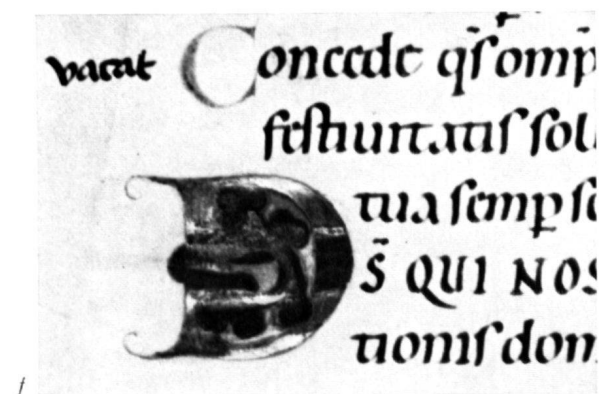 vacat Concede qs̄ omp̄
festiuitatis sol
tua semp se
DS̄ QUI NOS
tionis dom
f